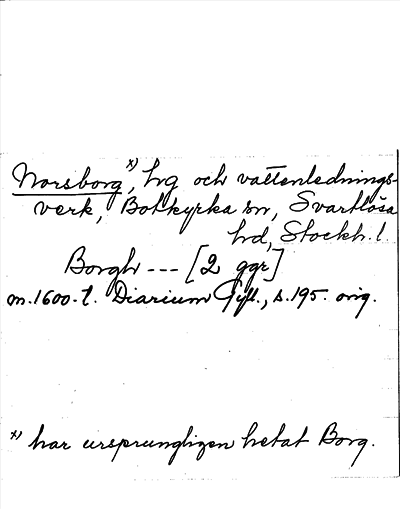 Norsborg x), hg och vattenlednings-
verk, Botkyrka sn, Svartlösa
hd, Stockh. l.
Borgh --- [2 ggr]
m. 1600-t. Diarium Gyll., s. 195. orig.
x) har ursprungligen hetat Borg.